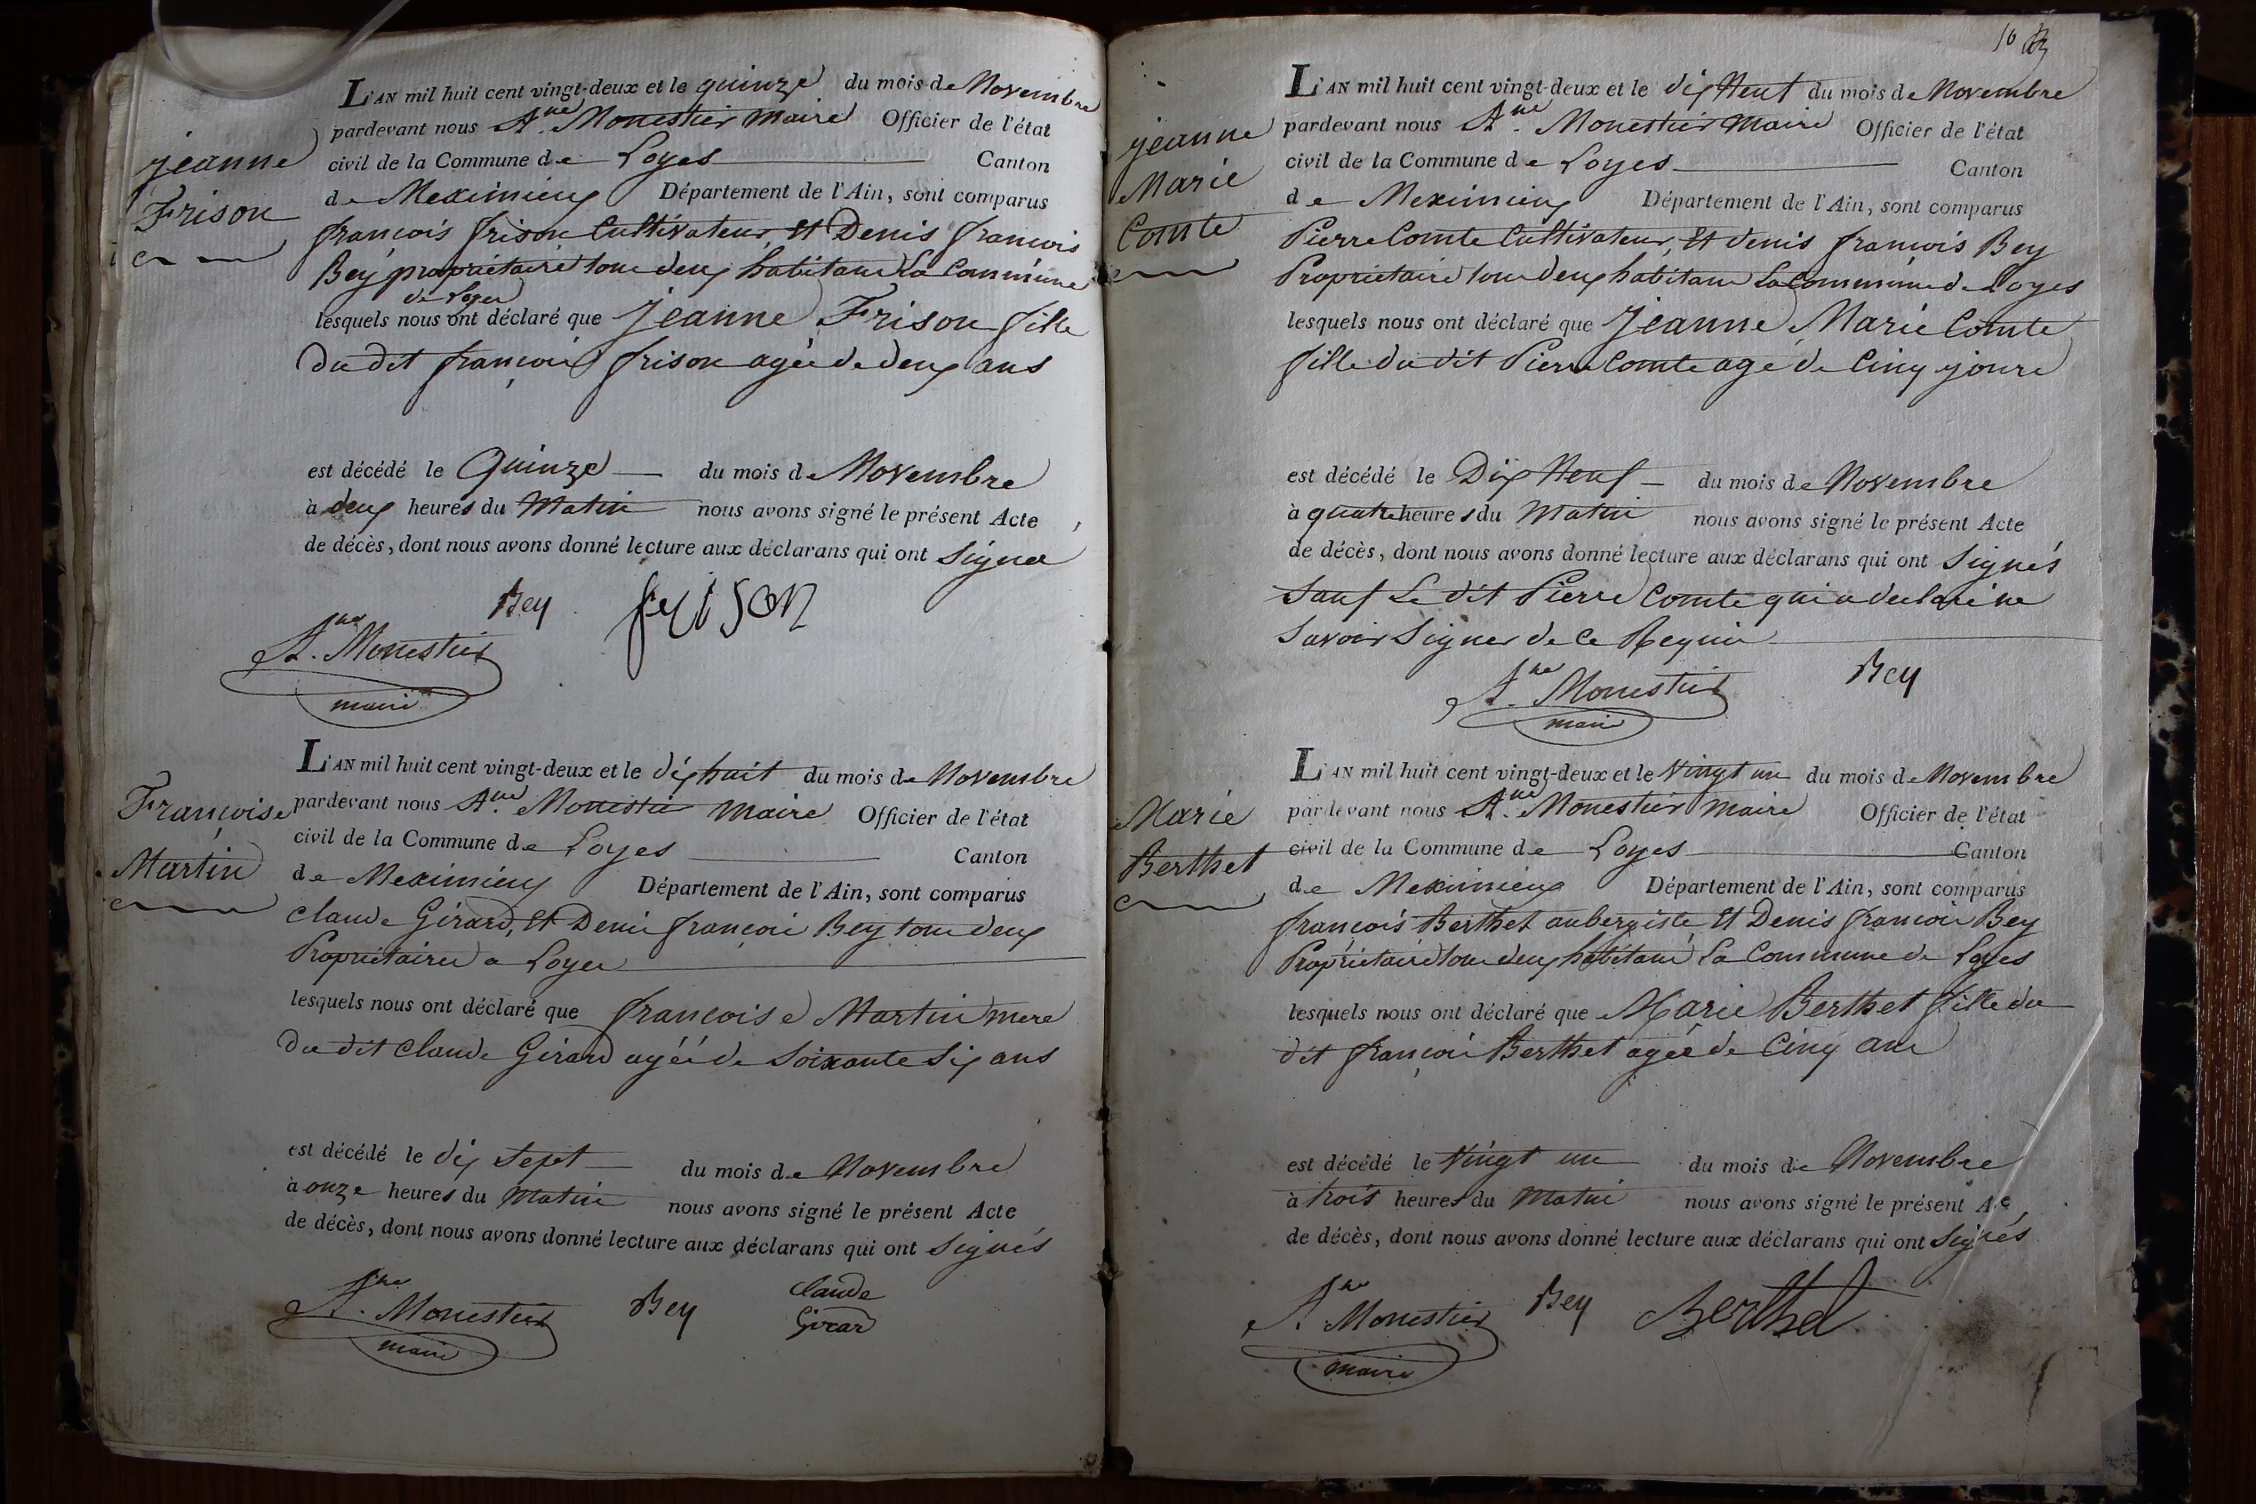 jeanne
Frison
L'AN mil huit cent vingt-deux et le quinze du mois de Novembre
pardevant nous A.ne Monestier maire Officier de l'état
civil de la Commune de Loyes Canton
de Meximieux Département de l'Ain, sont comparus
françois frison Cultivateur, Et Denis françois
Bey propriétaire tous deux habitant La Commune
de Loyes
lesquels nous ont déclaré que Jeanne Frison fille
du dit françois frison agée de deux ans
est décédé le Quinze du mois de Novembre
à deux heures du Matin nous avons signé le présent Acte
de décès, dont nous avons donné lecture aux déclarans qui ont signé
Bey frison
A.ne Monestier
maire
Françoise
Martin
L'AN mil huit cent vingt-deux et le dix huit du mois de Novembre
pardevant nous A.ne Monestier maire Officier de l'état
civil de la Commune de Loyes Canton
de Meximieux Département de l'Ain, sont comparus
Claude Girard, Et Denis françois Bey tous deux
Propriétaires a Loyes
lesquels nous ont déclaré que françoise Martin mere
du dit Claude Girard agée de Soixante Six ans
est décédé le dix Sept du mois de Novembre
à onze heures du Matin nous avons signé le présent Acte
de décès, dont nous avons donné lecture aux déclarans qui ont signés
A.ne Monestier Bey Claude
Girard
maire
10
jeanne
Marie
Comte
L'AN mil huit cent vingt-deux et le dix Neuf du mois de Novembre
pardevant nous A.ne Monestier Maire Officier de l'état
civil de la Commune de Loyes Canton
de Meximieux Département de l'Ain, sont comparus
Pierre Comte Cultivateur, Et denis françois Bey
Propriétaire tous deux habitant La Commune de Loyes
lesquels nous ont déclaré que Jeanne Marie Comte
fille du dit Pierre Comte agé de Cinq jours
est décédé le Dix Neuf du mois de Novembre
à quatre heures du Matin nous avons signé le présent Acte
de décès, dont nous avons donné lecture aux déclarans qui ont signés
Sauf Le dit Pierre Comte qui a declaré ne
Savoir Signer de Ce Requis
A.ne Monestier Bey
maire
Marie
Berthet
L'AN mil huit cent vingt-deux et le Vingt un du mois de Novembre
pardevant nous A.ne Monestier maire Officier de l'état
civil de la Commune de Loyes Canton
de Meximieux Département de l'Ain, sont comparus
françois Berthet aubergiste Et Denis françois Bey
Propriétaire tous deux habitant La Commune de Loyes
lesquels nous ont déclaré que Marie Berthet fille du
dit françois Berthet agée de Cinq ans
est décédé le Vingt un du mois de Novembre
à trois heures du Matin nous avons signé le présent Acte
de décès, dont nous avons donné lecture aux déclarans qui ont signés
A.ne Monestier Bey Berthet
maire